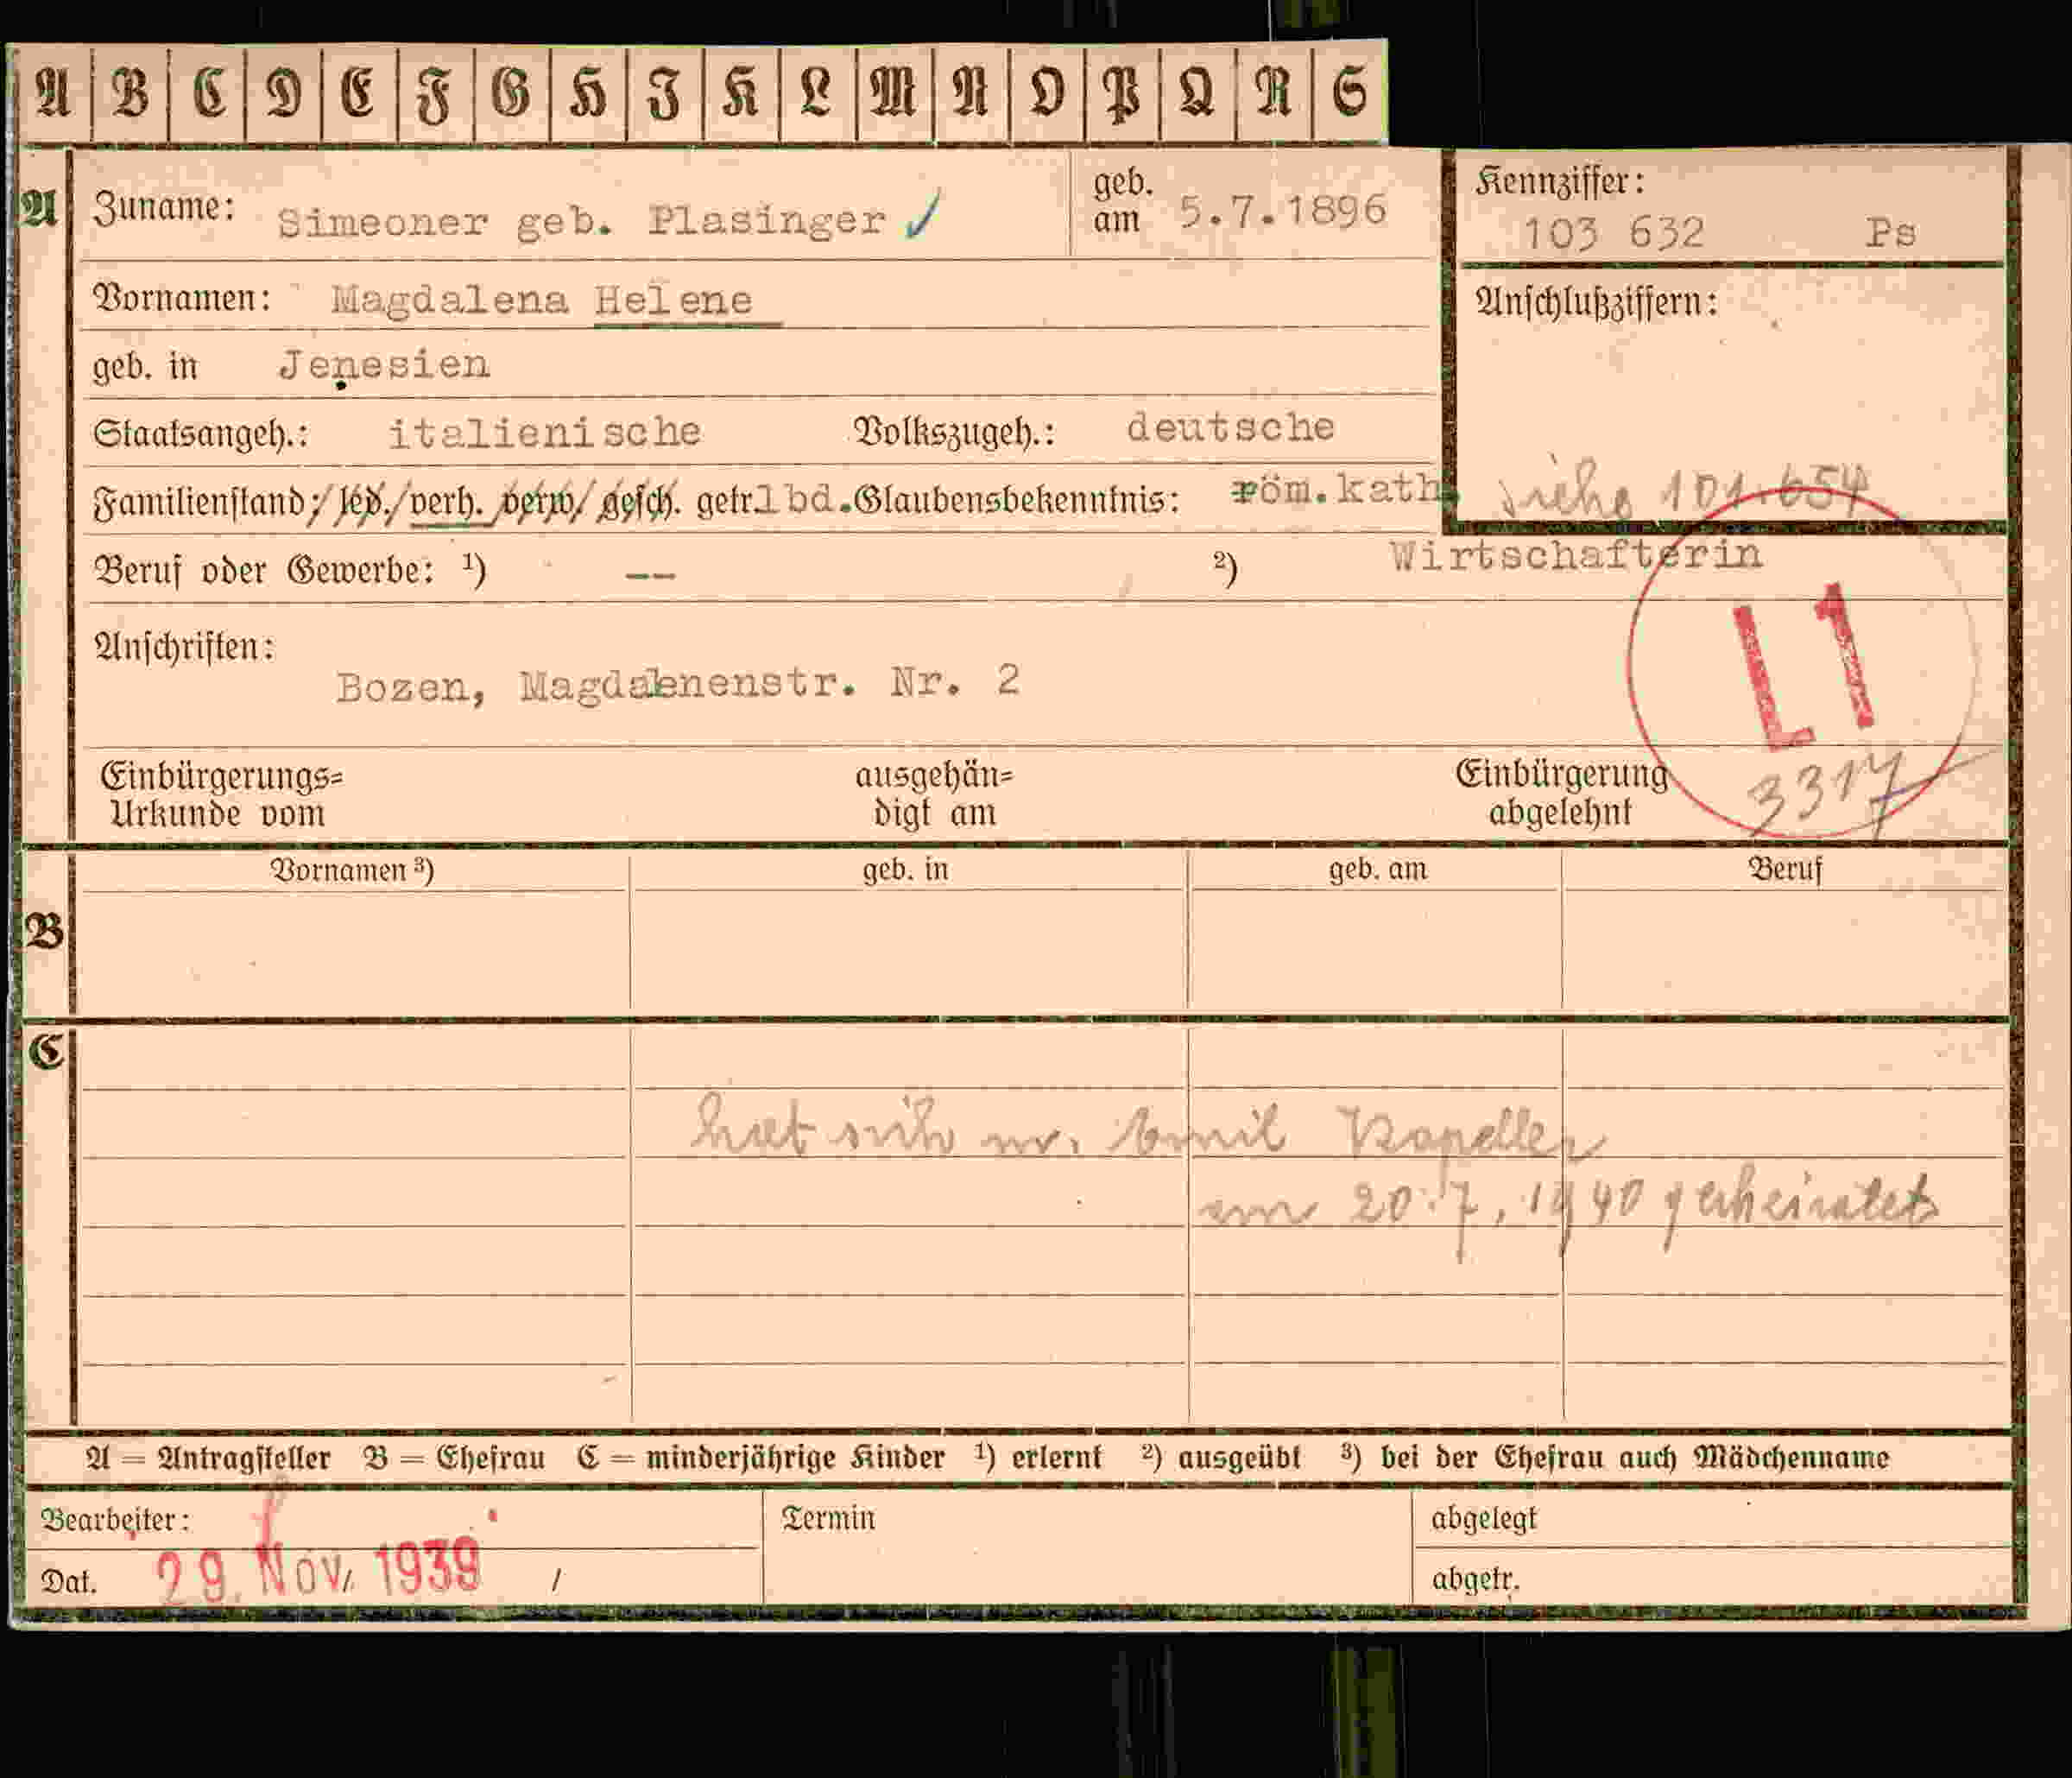 A B C D E F G H I K L M N O P Q R S
A Zuname: Simeoner geb. Plasinger geb. am 5.7.1896
Kennziffer: 103 632 Ps
Vornamen: Magdalena Helene
Anschlußziffern:
geb. in Jenesien
Staatsangeh.: italienische Volkszugeh.: deutsche
Familienstand: led. verh. verw. gesch. getr. lbd. Glaubensbekenntnis: röm.kath.
siehe 101.654
Beruf oder Gewerbe: ¹) -- ²) Wirtschafterin
L1
Anschriften:
Bozen, Magdalenenstr. Nr. 2
3317
Einbürgerungs= ausgehän= Einbürgerung
Urkunde vom digt am abgelehnt
Vornamen ³) geb. in geb. am Beruf
B
C
hat sich m. Emil Kapeller
am 20.7.1940 verheiratet
A = Antragsteller B = Ehefrau C = minderjährige Kinder ¹) erlernt ²) ausgeübt ³) bei der Ehefrau auch Mädchenname
Bearbeiter: Termin abgelegt
Dat. 29. Nov. 1939 / abgetr.